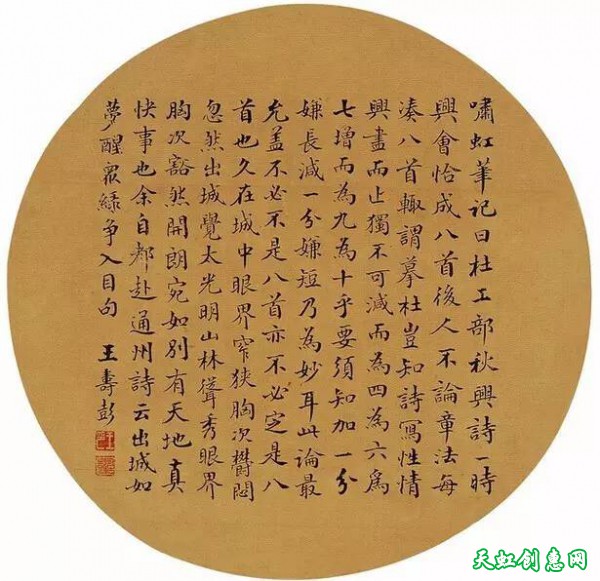 嘯虹筆記曰杜工部秋興詩一時
興會恰成八首後人不論章法每
湊八首輙謂摹杜豈知詩寫性情
興盡而止獨不可減而為四為六為
七增而為九為十乎要須知加一分
嫌長減一分嫌短乃為妙耳此論最
允盖不必不是八首亦不必定是八
首也久在城中眼界窄狹胸次鬱悶
忽然出城覺太光明山林聳秀眼界
胸次豁然開朗宛如別有天地真
快事也余自都赴通州詩云出城如
夢醒眾綠争入目句 王壽彭
天虹创意网